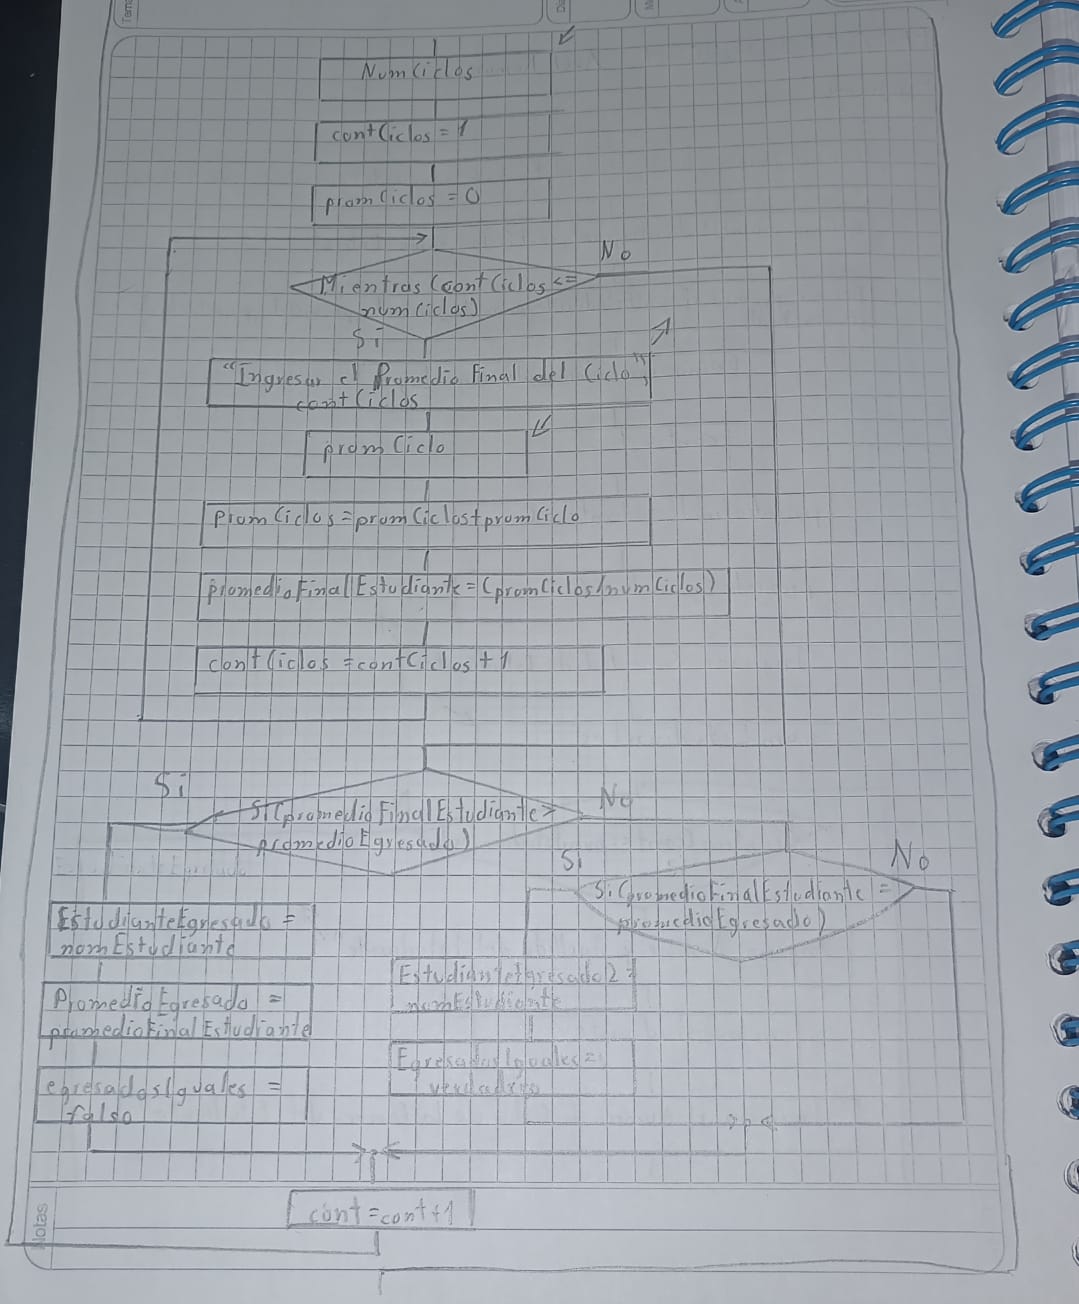 Tem
NumCiclos
contCiclos = 1
promCiclos = 0
No
Mientras (contCiclos <=
numCiclos)
Si
"Ingresar el Promedio Final del Ciclo",
contCiclos
promCiclo
PromCiclos = promCiclos + promCiclo
PromedioFinalEstudiante = (promCiclos/numCiclos)
contCiclos = contCiclos + 1
Si
No
Si (promedioFinalEstudiante >
promedioEgresado)
Si
No
Si (promedioFinalEstudiante =
promedioEgresado)
EstudianteEgresado =
nomEstudiante
EstudianteEgresado2 =
nomEstudiante
PromedioEgresado =
promedioFinalEstudiante
EgresadosIguales =
verdadero
egresadosIguales =
falso
cont = cont + 1
Notas